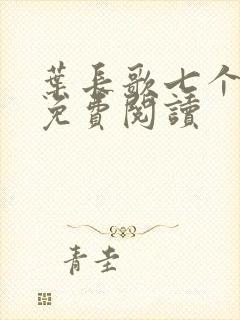 葉長歌七个
免費閱讀
青圭